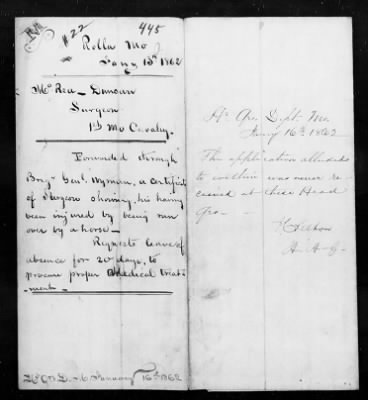 M
#22
445
Rolla Mo
Jany 13th 1862
McRea - Duncan
Surgeon
1st Mo Cavalry.
Forwarded through
Brigr Genl. Wyman, a certificate
of Surgeon showing his having
been injured by being run
over by a horse -
Requests leave of
absence for 20 days, to
procure proper Medical treat-
ment.
January 16th 1862
Hd Qrs Dept. Mo.
Jany 16th 1862
The application alluded
to within was never re-
ceived at these Head
Qrs -
A. A. G.